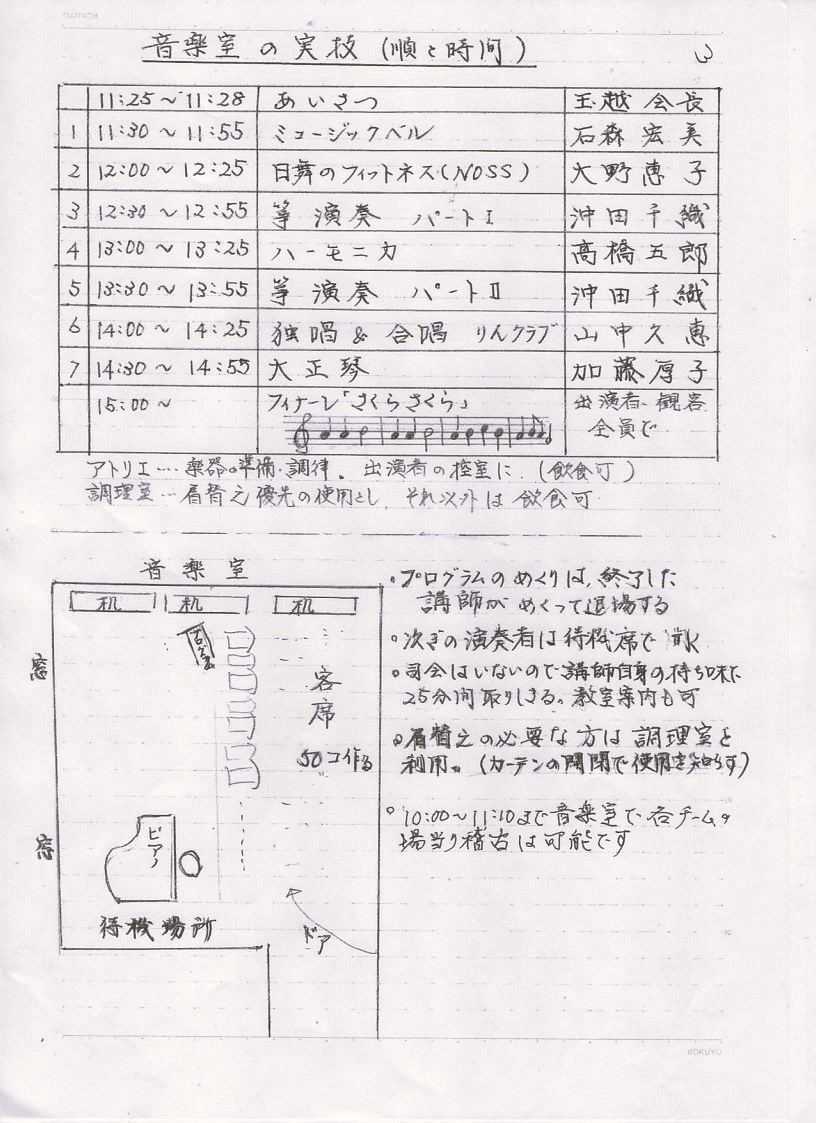 KOKUYO
音楽室の実技(順と時間)
3
11:25～11:28 あいさつ 玉越会長
1 11:30～11:55 ミュージックベル 石森宏美
2 12:00～12:25 日舞のフィットネス(NOSS)大野恵子
3 12:30～12:55 箏演奏 パートⅠ 沖田千織
4 13:00～13:25 ハーモニカ 髙橋五郎
5 13:30～13:55 箏演奏 パートⅡ 沖田千織
6 14:00～14:25 独唱&合唱 りんクラブ 山中久恵
7 14:30～14:55 大正琴 加藤厚子
15:00～ フィナーレ「さくらさくら」 出演者、観客
全員で
アトリエ…楽器の準備・調律。出演者の控室に(飲食可)
調理室…着替え優先の使用とし、それ以外は飲食可
音楽室
机 机 机
プログラム
窓
客席
50コ作る
ピアノ
窓
待機場所
ドア
。プログラムのめくりは、終了した
講師がめくって退場する
。次ぎの演奏者は待機席で
。司会はいないので講師自身の持ち味で
25分間取りしきる。教室案内も可
。着替えの必要な方は調理室を
利用。(カーテンの開閉で使用を知らす)
。10:00～11:10まで音楽室で各チームの
場当り稽古は可能です
KOKUYO